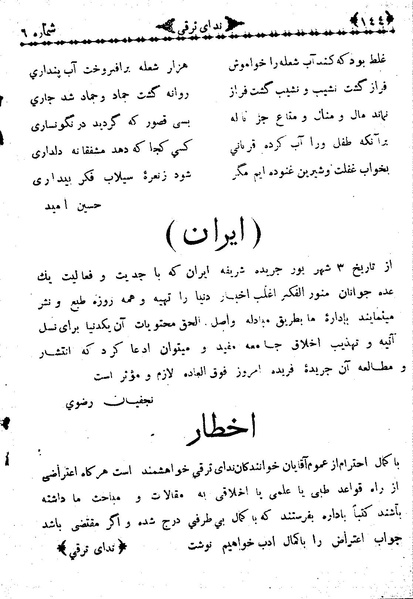 شماره ۶ ندای ترقی ﴿۱۴۴﴾
غلط بود که کند آب شعله را خواموش هزار شعله برافروخت آب پنداری
فراز گشت نشیب و نشیب گشت فراز روانه گشت جماد و جماد شد جاری
نماند مال و منال و متاع جز ناله بسی قصور که گردید در نگونساری
برآنکه طفل ورا آب کرده قربانی کسی کجا که دهد مشفقانه دلداری
بخواب غفلت و شیرین غنوده ایم مگر شود زنعرۀ سیلاب فکر بیداری
حسین امید
(ایران)
از تاریخ ۳ شهر یور جریده شریفه ایران که با جدیت و فعالیت یك
عده جوانان منور الفکر اغلب اخبار دنیا را تهیه و همه روزه طبع و نشر
مینمایند بإدارۀ ما بطریق مبادله واصل. الحق محتویات آن یکدنیا برای نسل
آتیه و تهذیب اخلاق جامعه مفید و میتوان ادعا کرد که انتشار
و مطالعه آن جریدۀ فریده امروز فوق العاده لازم و مؤثر است
نجفیان رضوی
اخطار
با کمال احترام از عموم آقایان خوانندکان ندای ترقی خواهشمند است هرکاه اعتراضی
از راه قواعد طبی یا علمی یا اخلاقی به مقالات و مباحث ما داشته
باشند کتباً باداره بفرستند که با کمال بی‌طرفی درج شده و اگر مقتضی باشد
جواب اعتراض را باکمال ادب خواهیم نوشت ﴿ندای ترقی﴾